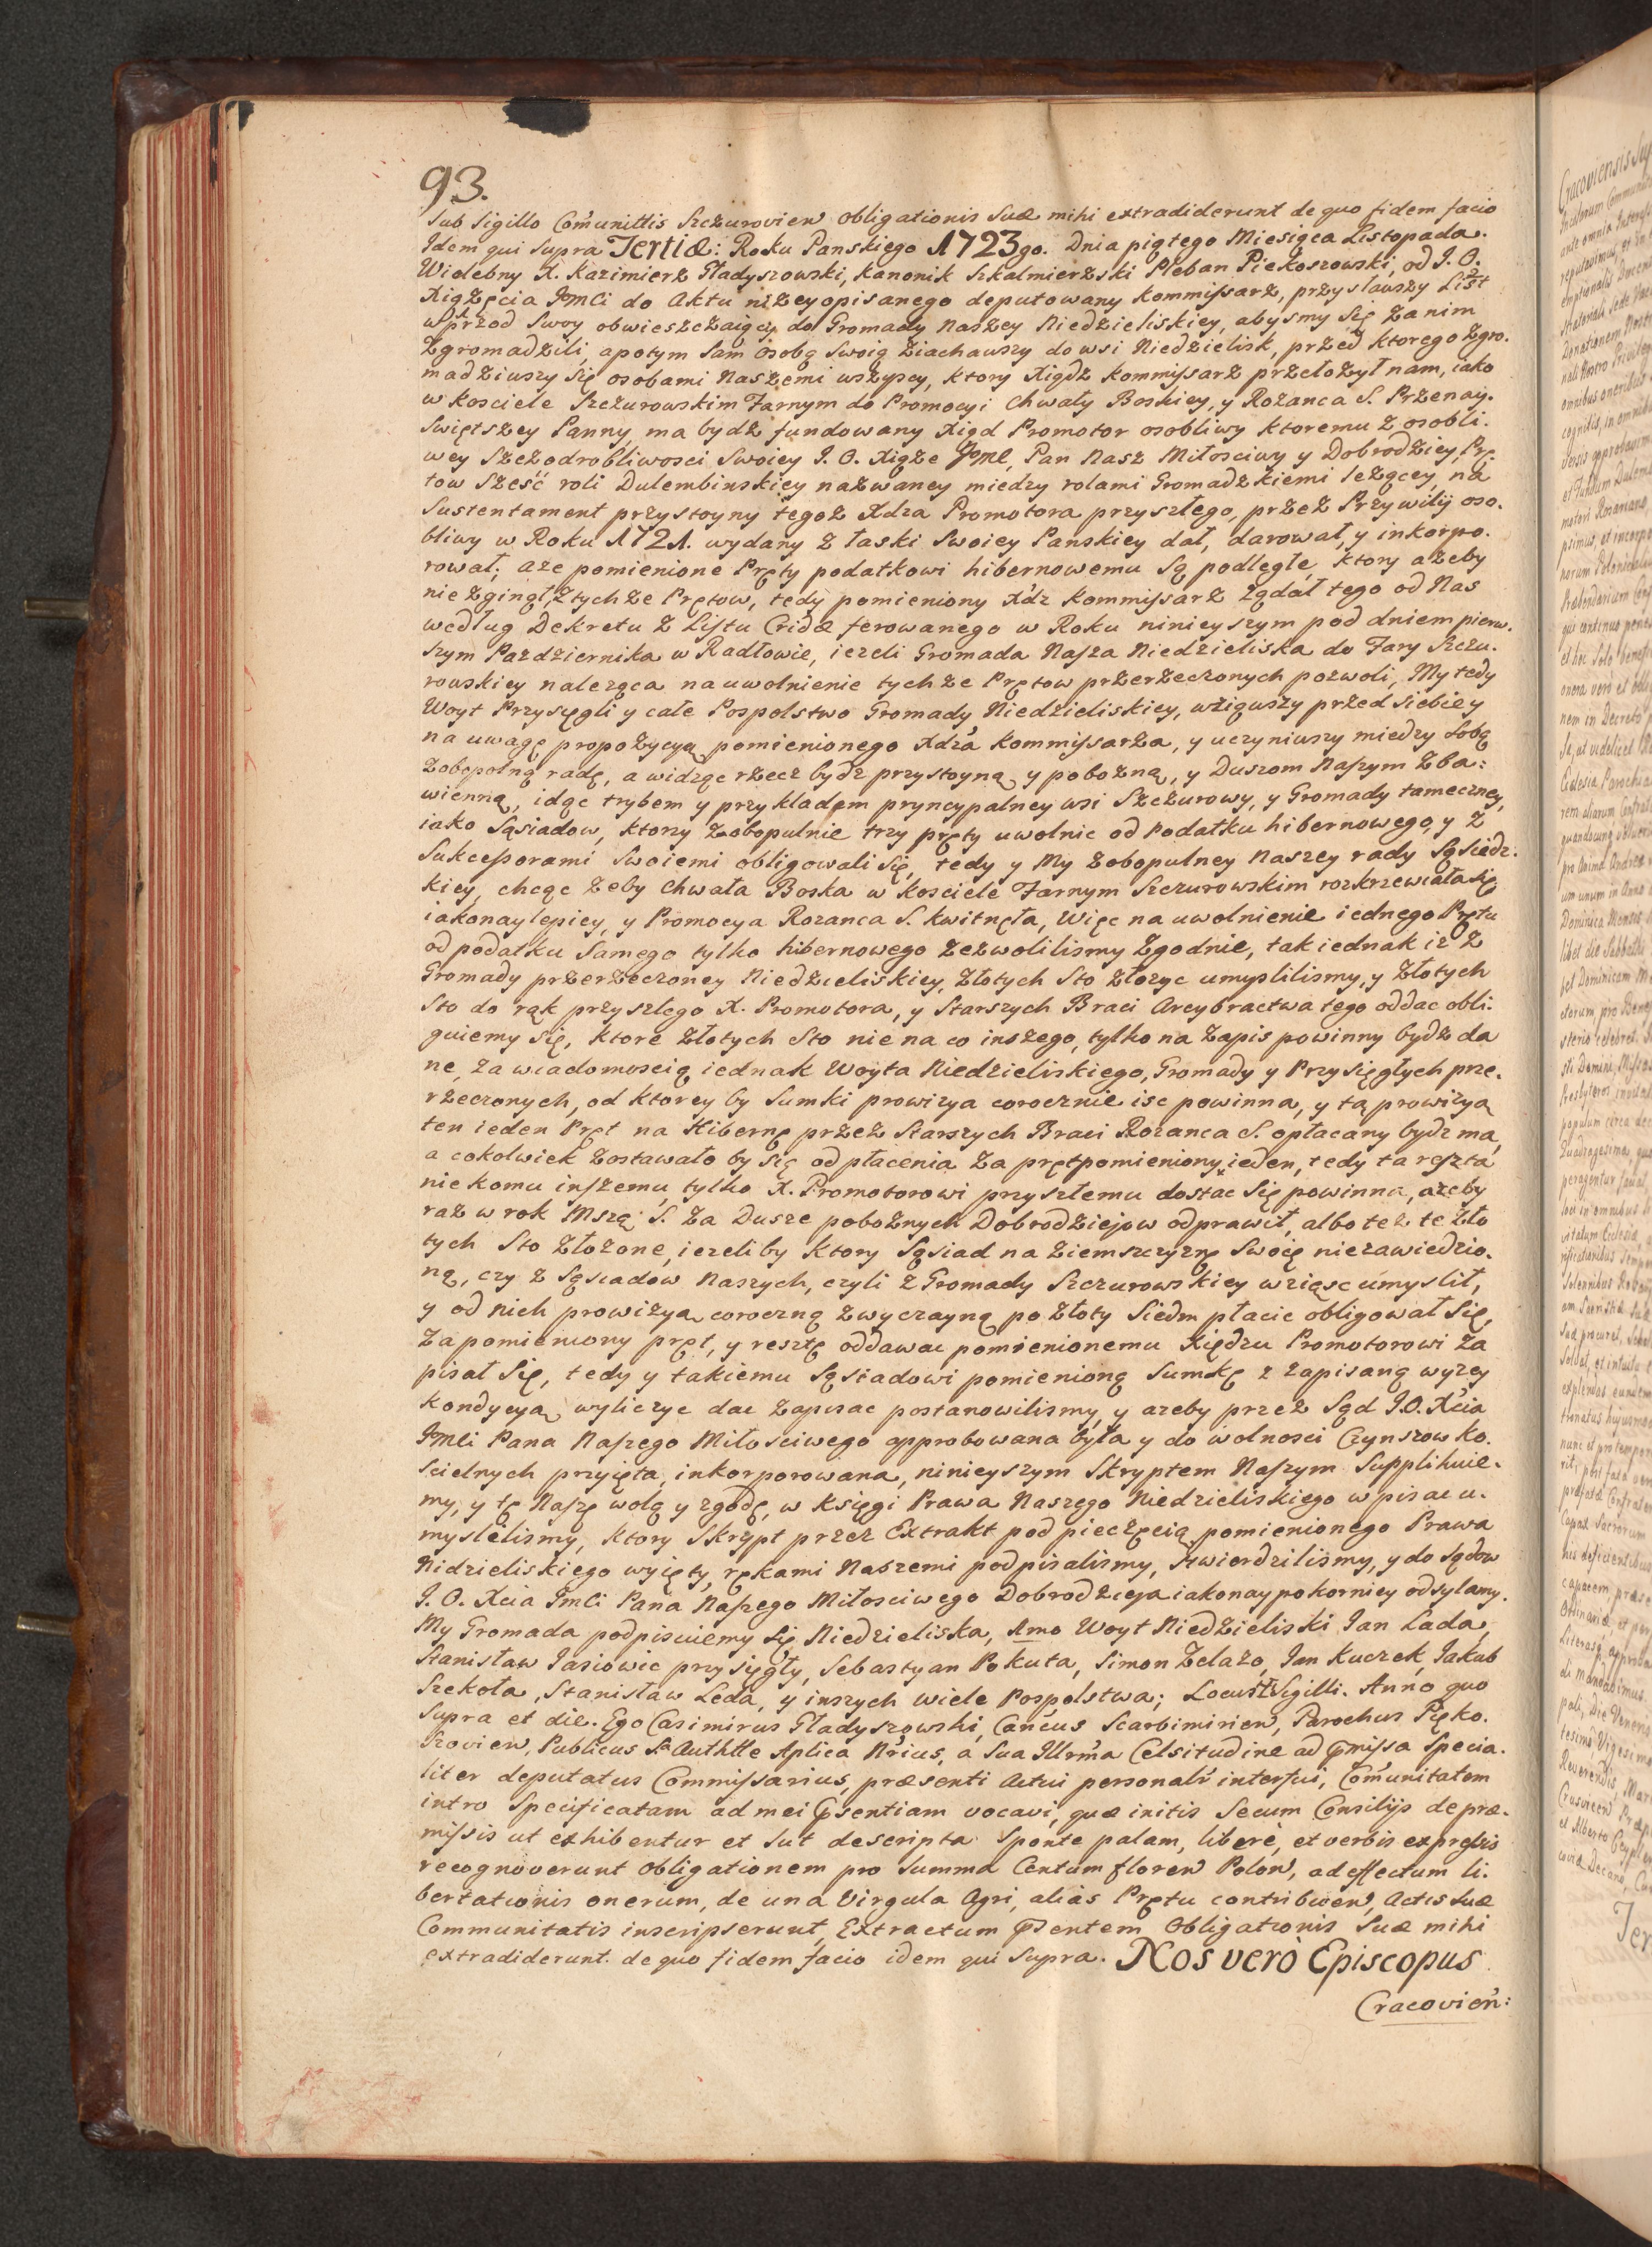 93.
Sub Sigillo Com̃unittis Szczurovien̄ obligationis Suæ mihi extradiderunt de quo fidem facio
Idem qui Supra Tertiæ: Roku Panskiego 1723go. Dnia piątego Miesiąca Listopada.
Wielebny X. Kazimierz Gładyszowski, Kanonik Szkalmierzski Pleban Piekoszowski, od J. O.
Xiążęcia Jmci do Aktu niżey opisanego deputowany Kommissarz, przysławszy List
wprzod Swoy obwieszczaiący do Gromady naszey Niedzieliskiey, abysmy się za nim
zgromadzili, apotym Sam osobą Swoią ziachawszy do wsi Niedzielisk, przed ktorego zgro-
madziwszy się osobami Naszemi wszyscy, ktory Xiądz Kommissarz przełożył nam, iako
w kosciele Szczurowskim Farnym do Promocyi Chwały Boskiey, y Rożanca S. Przenay-
Swiętszey Panny ma bydz fundowany Xiądz Promotor osobliwy ktoremu z osobli-
wey Szczodrobliwosci Swoiey J. O. Xiąże Jmc, Pan Nasz Miłosciwy y Dobrodziey, Prę-
tow Sześć roli Dulembinskiey nazwaney miedzy rolami Gromadzkiemi leżącey, na
Sustentament przystoyny tegoż Xdza Promotora przyszłego, przez Przywiliy oso-
bliwy w Roku 1721. wydany z łaski Swoiey Panskiey dał, darował, y inkorpo-
rował; aże pomienione Pręty podatkowi hibernowemu Są podległe, ktory ażeby
nie zginął, z tychże Prętow, tedy pomieniony Xdz Kommissarz żądał tego od Nas
według Dekretu z Listu Cridæ ferowanego w Roku ninieyszym pod dniem pierw-
szym Pazdziernika w Radłowie, ieżeli Gromada Nasza Niedzieliska do Fary Szczu-
rowskiey należąca na uwolnienie tychże Prętow przerzeczonych pozwoli, My tedy
Woyt Przysięgli y całe Pospolstwo Gromady Niedzieliskiey, wziąwszy przed siebie y
na uwagę propozycyą pomienionego Xdza Kommissarza, y uczyniwszy miedzy sobą
zobopolną radę, a widząc rzecz bydz przystoyną y pobożną, y Duszom Naszym zba-
wienną, idąc trybem y przykładem pryncypalney wsi Szczurowy, y Gromady tameczney,
iako Sąsiadow, ktorzy zobopulnie trzy pręty uwolnic od podatku hibernowego y z
Sukcessorami Swoiemi obligowali się, tedy y My zobopulney Naszey rady Sąsiedz-
kiey, chcąc żeby Chwała Boska w kosciele Farnym Szczurowskim rozkrzewiała się
iakonaylepiey, y Promocya Rożanca S. kwitnęła, Więc na uwolnienie iednego Prętu
od podatku Samego tylko hibernowego zezwolilismy zgodnie, tak iednak iż z
Gromady przerzeczoney Niedzieliskiey, złotych Sto złożyc umyslilismy, y złotych
Sto do rąk przyszłego X. Promotora, y Starszych Braci Arcybractwa tego oddac obli-
guiemy się, ktore złotych Sto nie na co inszego, tylko na zapis powinny bydz da
ne, za wiadomoscią iednak Woyta Niedzieliskiego, Gromady y Przysięgłych prze-
rzeczonych, od ktorey by Sumki prowizya corocznie isc powinna, y tą prowizyą
ten ieden Pręt na Hibernę przez Starszych Braci Rożanca S. opłacany bydz ma,
a cokolwiek zostawało by się od płacenia za pręt pomieniony ieden, tedy ta reszta
niekomu inszemu tylko X. Promotorowi przyszłemu dostac się powinna, ażeby
raz w rok Mszą S. za Dusze pobożnych Dobrodziejow odprawił, albo też te zło
tych Sto złożone, ieżeliby ktory Sąsiad na ziemszczyznę Swoię niezawiedzio-
ną, czy z Sąsiadow Naszych, czyli z Gromady Szczurowskiey wziąsc umyslił,
y od nich prowizyą coroczną zwyczayną po złoty Siedm płacic obligował się,
za pomieniony pręt, y resztę oddawac pomienionemu Xiędzu Promotorowi za
pisał się, tedy y takiemu Sąsiadowi pomienioną Sumkę z zapisaną wyżey
kondycyą wyliczyc dac zapisac postanowilismy, y ażeby przez Sąd J.O. Xcia
Jmci Pana Naszego Miłosciwego approbowana była y do wolnosci Czynszow ko-
scielnych przyięta, inkorporowana, ninieyszym Skryptem Naszym Supplikuie-
my, y tę Naszę wolą y zgodę, w Księgi Prawa Naszego Niedzieliskiego wpisac u-
myslelismy, ktory Skrypt przez Extrakt pod pieczęcią pomienionego Prawa
Nidzieliskiego wyięty, rękami Naszemi podpisalismy, stwierdzilismy, y do Sądow
J. O. Xcia Jmci Pana Naszego Miłosciwego Dobrodzieja iakonaypokorniey odsyłamy.
My Gromada podpisuiemy się Niedzieliska, Amo Woyt Niedzieliski Jan Lada,
Stanisław Jasiowic przysięgły, Sebastyan Pokuta, Simon Zelazo, Jan Kuczek, Jakub
Szekoła, Stanisław Leda, y inszych wiele Pospolstwa; Locus Sigilli. Anno quo
Supra et die. Ego Casimirus Gładyszowski, Can̄cus Scarbimirien̄, Parochus Pięko-
szovien̄, Publicus Sa Authtte Aplica Nrius, a Sua Illrma Celsitudine ad p̄missa Specia-
liter deputatus Commissarius, præsenti Actui personalr̄ interfui, Com̃unitatem
intro Specificatam ad mei p̄sentiam vocavi, quæ initis Secum Consilijs de præ-
missis ut exhibentur et Sut descripta Sponte palam, liberè, et verbis expressis
recognoverunt obligationem pro Summa Centum floren̄ Polon̄, ad effectum li-
bertationis onerum, de una Virgula Agri, aliàs Prętu contribuen̄, Actis Suæ
Communitatis inscripserunt, Extractum p̄sentem Obligationis Suæ mihi
extradiderunt. de quo fidem facio idem qui Supra. Nos verò Episcopus
Cracovien̄: